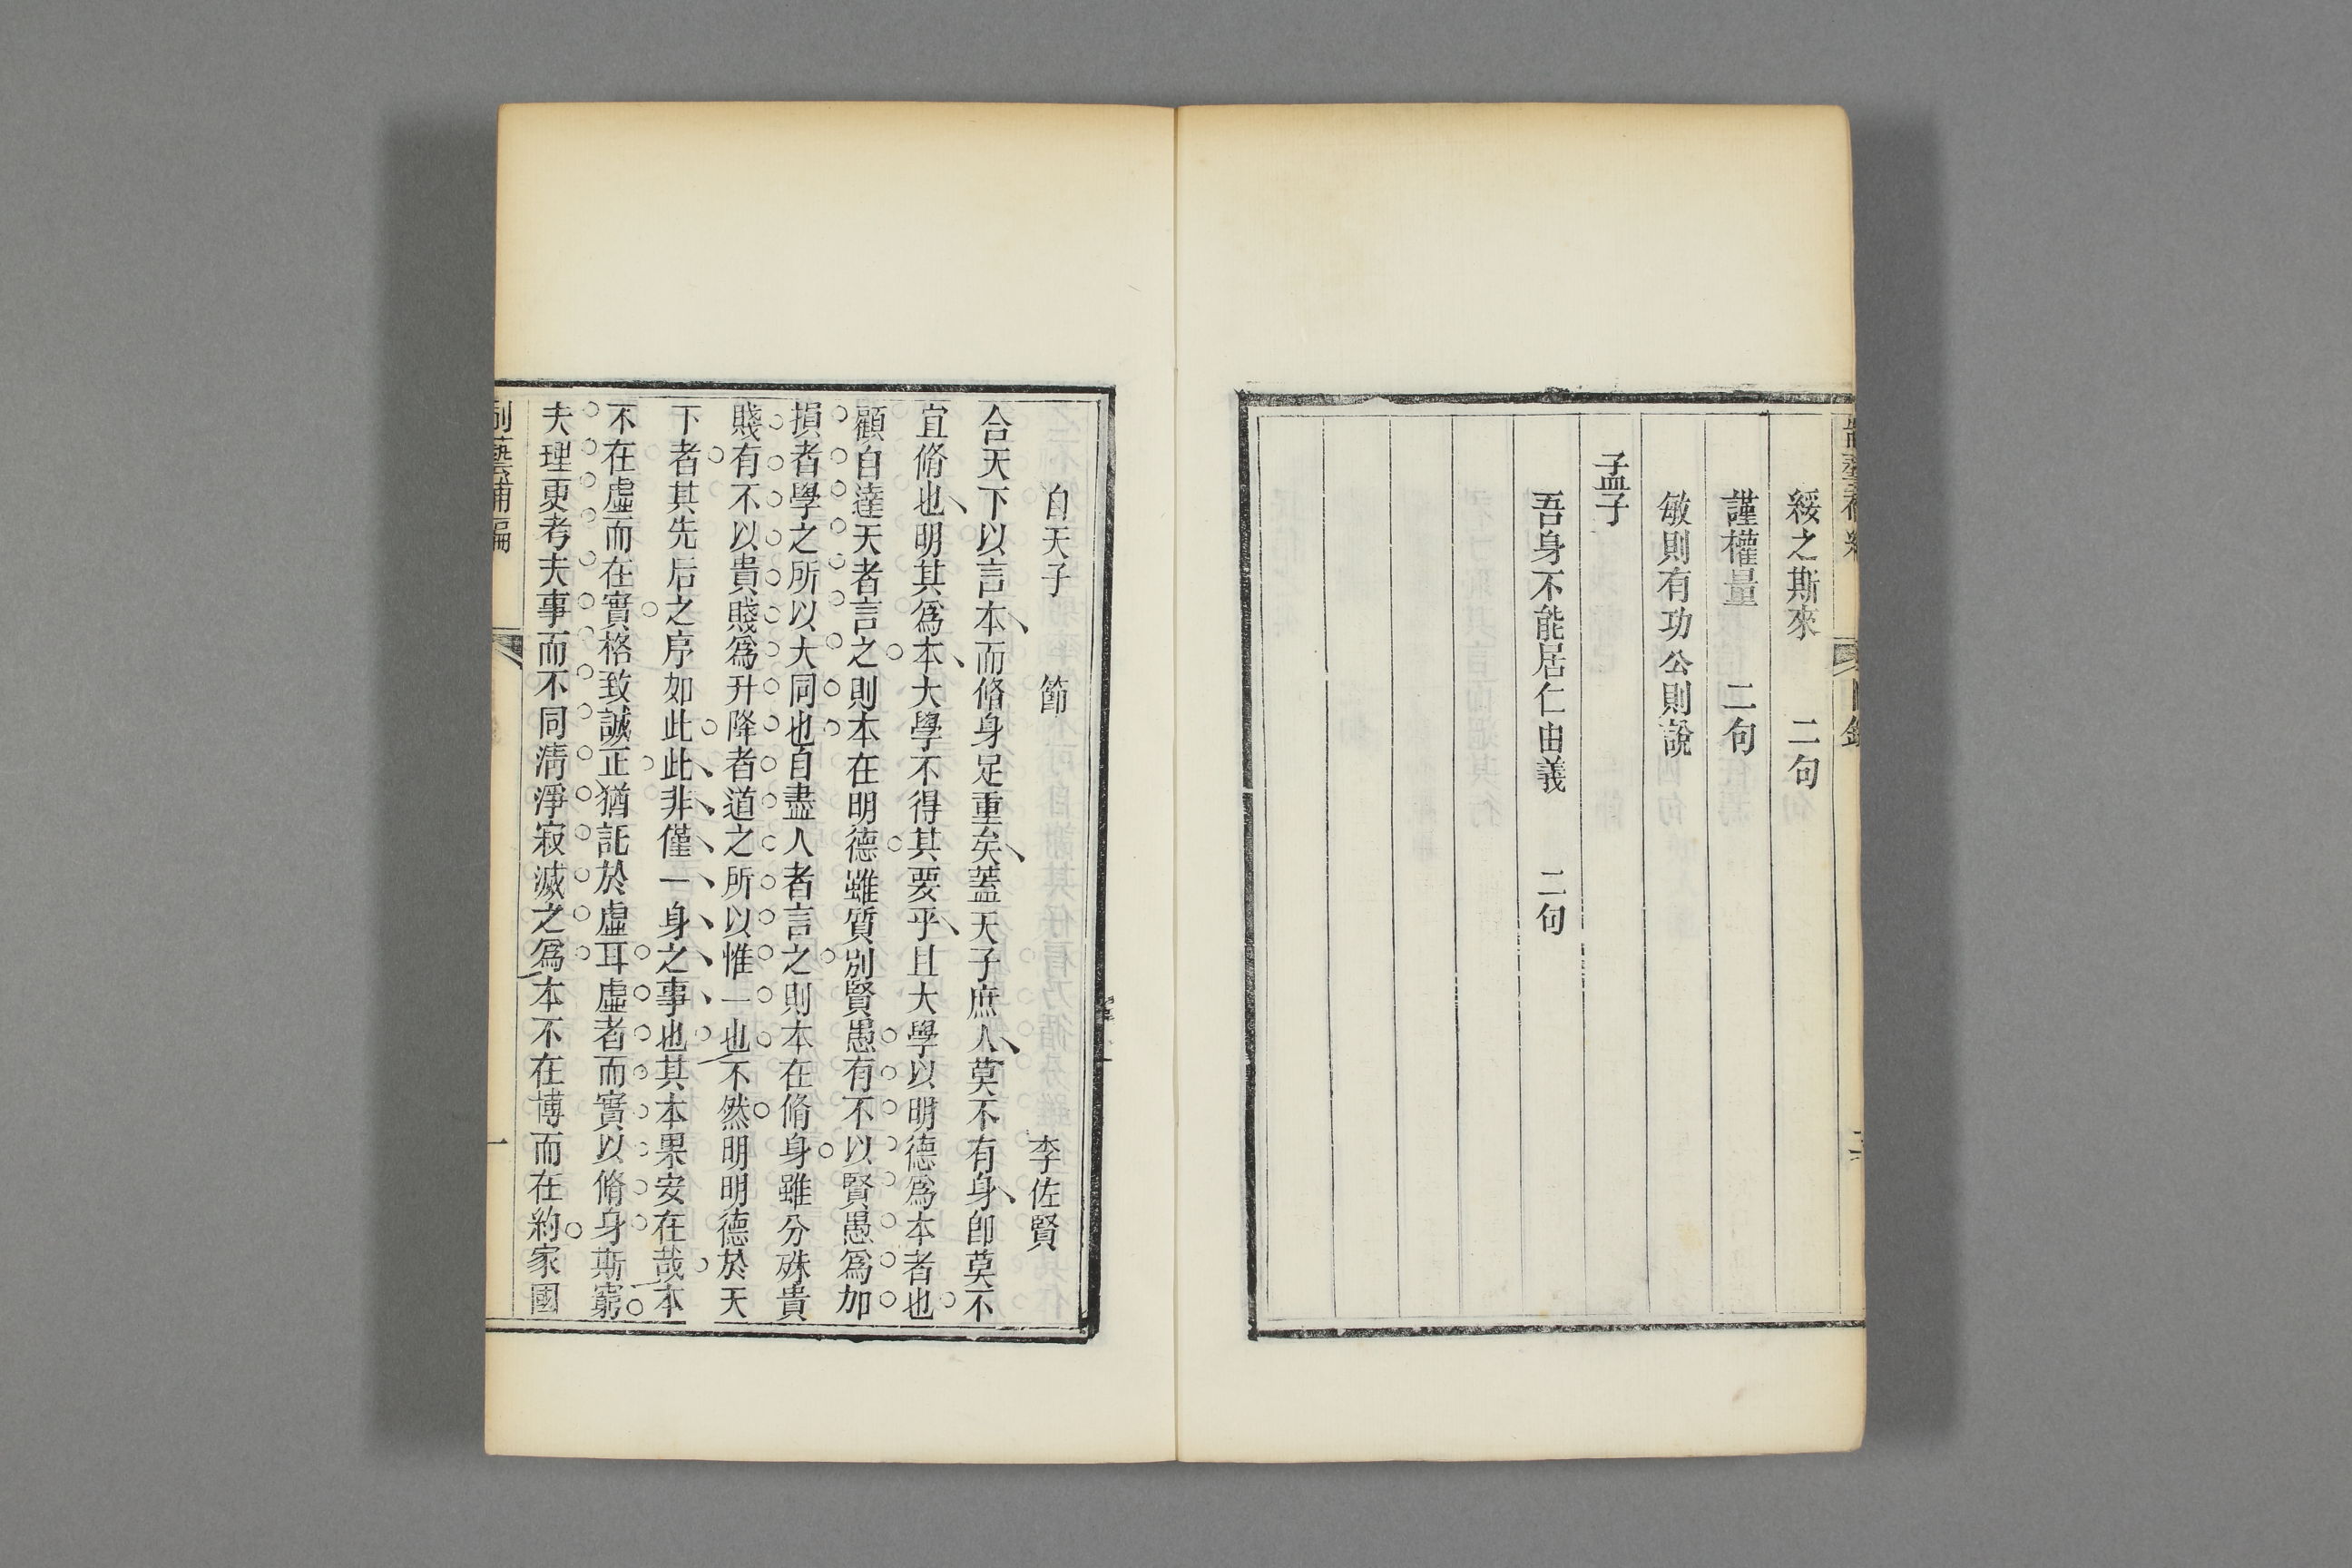 綏之斯來 二句
謹權量 二句
敏則有功公則說
孟子
吾身不能居仁由義 二句
自天子 節 李佐賢
合天下以言本而脩身足重矣蓋天子庶人莫不有身卽莫不
宜脩也明其爲本大學不得其要乎且大學以明德爲本者也
顧自達天者言之則本在明德雖質別賢愚有不以賢愚爲加
損者學之所以大同也自盡人者言之則本在脩身雖分殊貴
賤有不以貴賤爲升降者道之所以惟一也不然明明德於天
下者其先后之序如此此非僅一身之事也其本果安在哉本
不在虛而在實格致誠正猶託於虛耳虛者而實以脩身斯窮
夫理更考夫事而不同淸淨寂滅之爲本不在博而在約家國